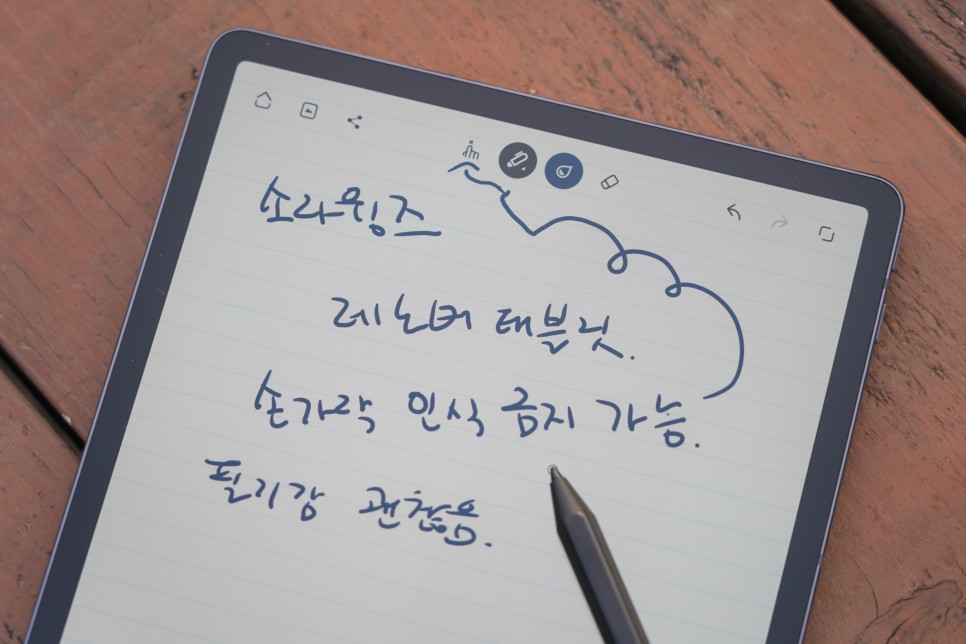 소라윙즈
레노버 태블릿.
손가락 인식 금지 가능.
필기감 괜찮음.